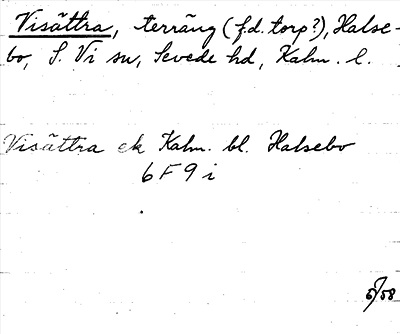 Visättra, terräng (f.d. torp?), Halse-
bo, S. Vi sn, Sevede hd, Kalm. l.
Visättra ek Kalm. bl. Halsebo
6 F 9 i
5/58